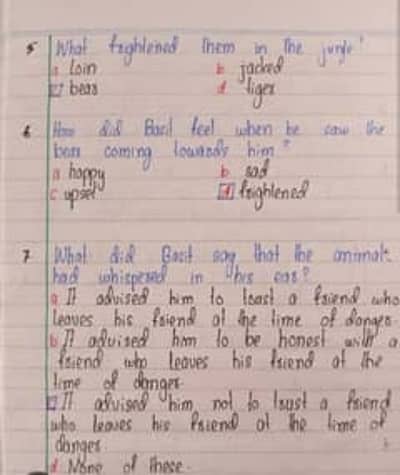 5 What frghtened them in the jungle?
a loin b jacked
c bear d tiger
6 How did Basil feel when he saw the
bear coming towards him?
a happy b sad
c upset d frightened
7 What did Basit say that the animal
had whispered in his ear?
a It advised him to trust a friend who
leaves his friend at the time of danger.
b It advised him to be honest with a
friend who leaves his friend at the
time of danger.
c It advised him not to trust a friend
who leaves his friend at the time of
danger.
d None of these.